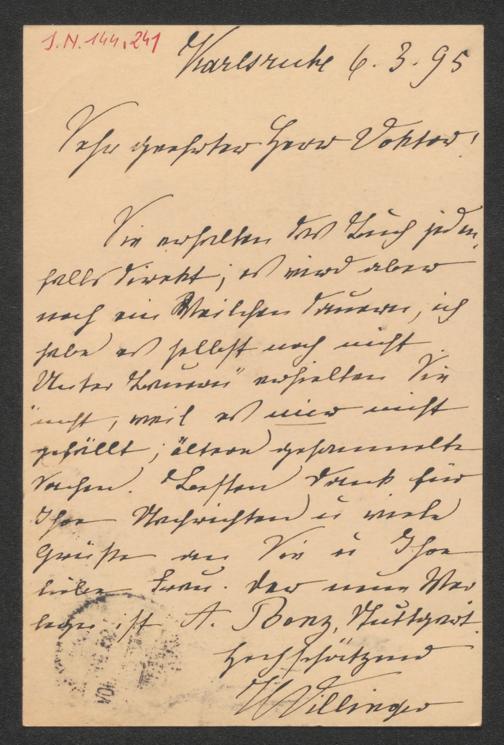 J.N. 144.241
Karlsruhe 6. 3. 95
Sehr geehrter Herr Doktor!
Sie erhalten das Buch jeden-
falls direkt; es wird aber
noch ein Weilchen dauern, ich
habe es selbst noch nicht.
"Unter Bauern" erhielten Sie
nicht, weil es mir nicht
gefällt; ältere gesammelte
Sachen. Besten Dank für
Ihre Nachrichten u viele
Grüße an Sie u Ihre
liebe Frau. Der neue Ver
leger ist A. Bonz, Stuttgart.
Hochschätzend
HVillinger